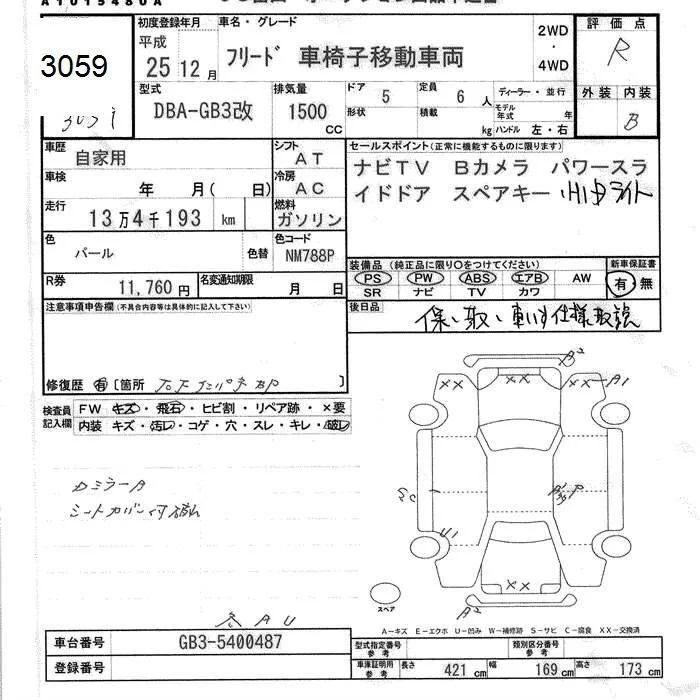 A1015480A
3059
初度登録年月
平成
25 12 月
車名・グレード
フリード 車椅子移動車両
2WD
・
4WD
評価点
R
外装 内装
B
型式
DBA-GB3改
排気量
1500
CC
ドア 5
定員 6 人
形状
積載 kg
ディーラー・並行
モデル年式 年
ハンドル 左・右
車歴
自家用
シフト
AT
車検
年 月( 日)
冷房
AC
走行
13万4千193 km
燃料
ガソリン
色
パール
色替
色コード
NM788P
R券
11,760 円
名変通知期限
月 日
セールスポイント(正常に機能するものに限ります)
ナビTV Bカメラ パワースラ
イドドア スペアキー HIDライト
装備品(純正品に限り○をつけてください)
新車保証書
PS PW ABS エアB AW
有・無
SR ナビ TV カワ
後日品
保、取、車いす仕様取説
注意事項申告欄(不具合内容等は具体的に記入して下さい)
修復歴 有 〔箇所 〕
検査員記入欄
FW キズ・飛石・ヒビ割・リペア跡・×要
内装 キズ・汚レ・コゲ・穴・スレ・キレ・破レ
カミラーA
シートカバー付
A2
XX
XX
XX
A1
U1
XX
A2
スペア
A-キズ E-エクボ U-凹み W-補修跡 S-サビ C-腐食 XX-交換済
車台番号
GB3-5400487
登録番号
型式指定番号
参考
類別区分番号
参考
車庫証明用
参考
長さ 421 cm
幅 169 cm
高さ 173 cm